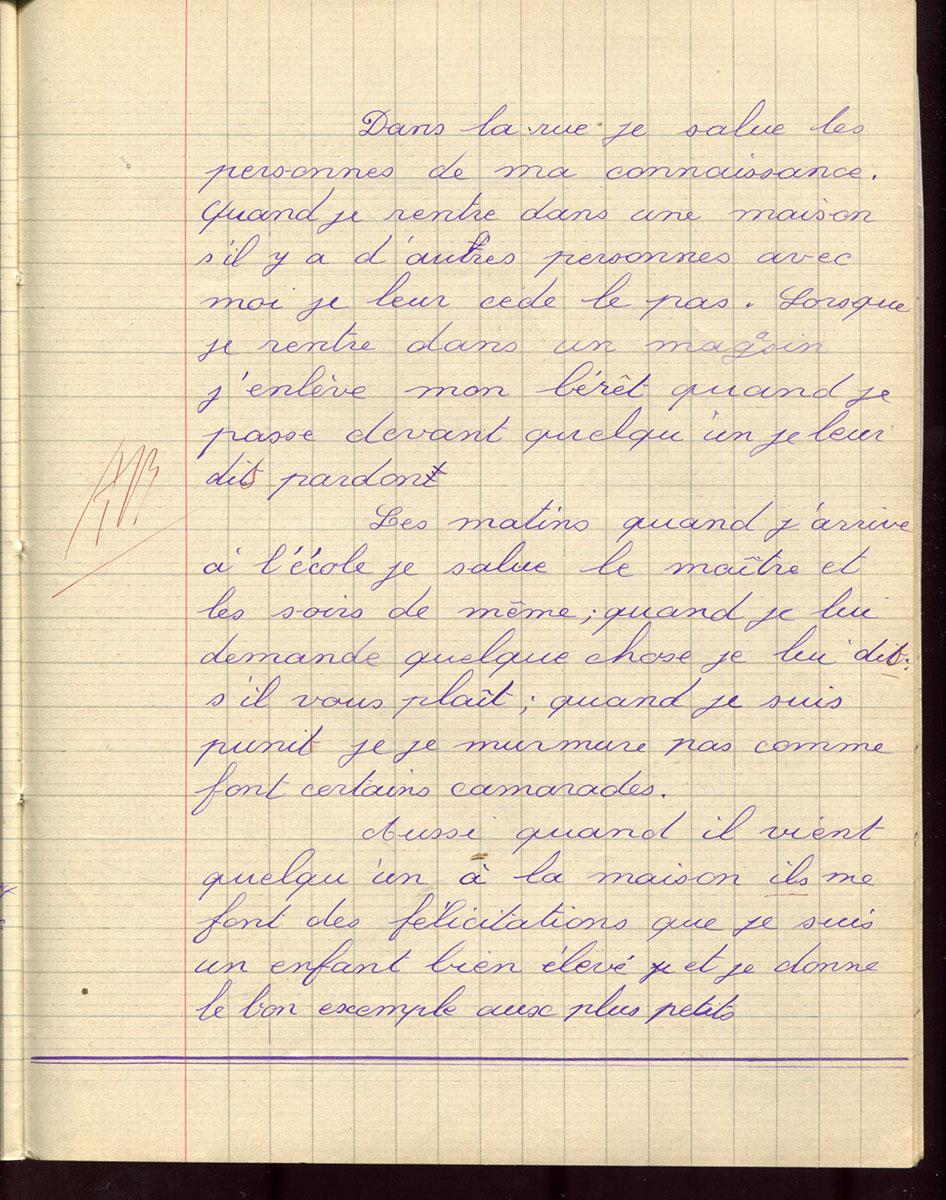 Dans la rue je salue les
personnes de ma connaissance.
Quand je rentre dans une maison
s'il y a d'autres personnes avec
moi je leur cède le pas. Lorsque
je rentre dans un magasin
j'enlève mon bérêt quand je
passe devant quelqu'un je leur
dis pardon
TB
Les matins quand j'arrive
à l'école je salue le maître et
les soirs de même; quand je lui
demande quelque chose je lui dis:
s'il vous plaît; quand je suis
punit je je murmure pas comme
font certains camarades.
Aussi quand il vient
quelqu'un à la maison ils me
font des félicitations que je suis
un enfant bien élevé et je donne
le bon exemple aux plus petits